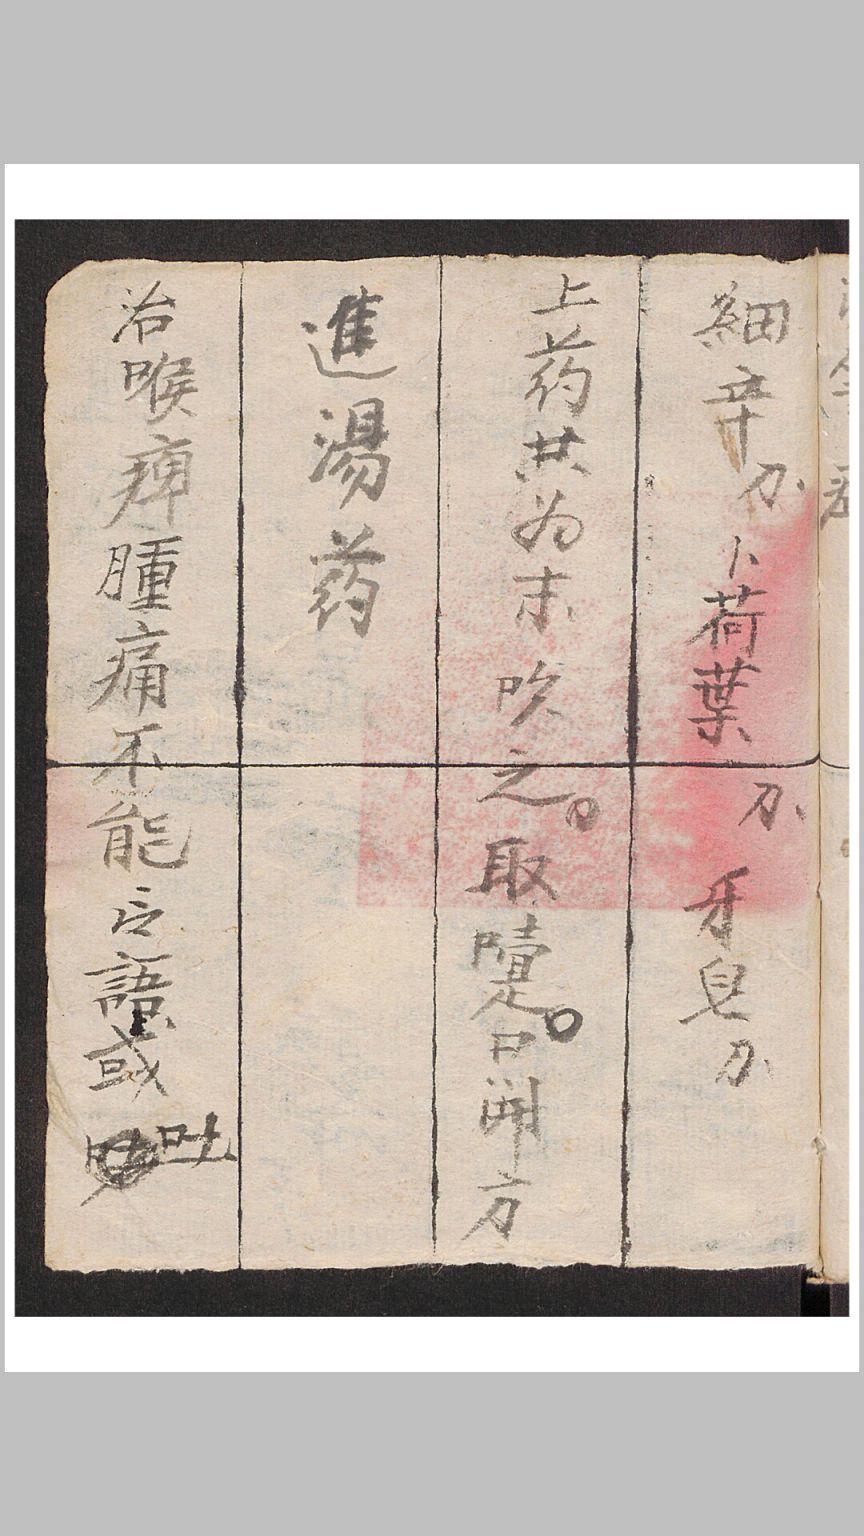 細辛 卜荷葉 牙皂
上药共为末吹之。取嚏。口開方
進湯药
治喉痺腫痛不能言語或吐